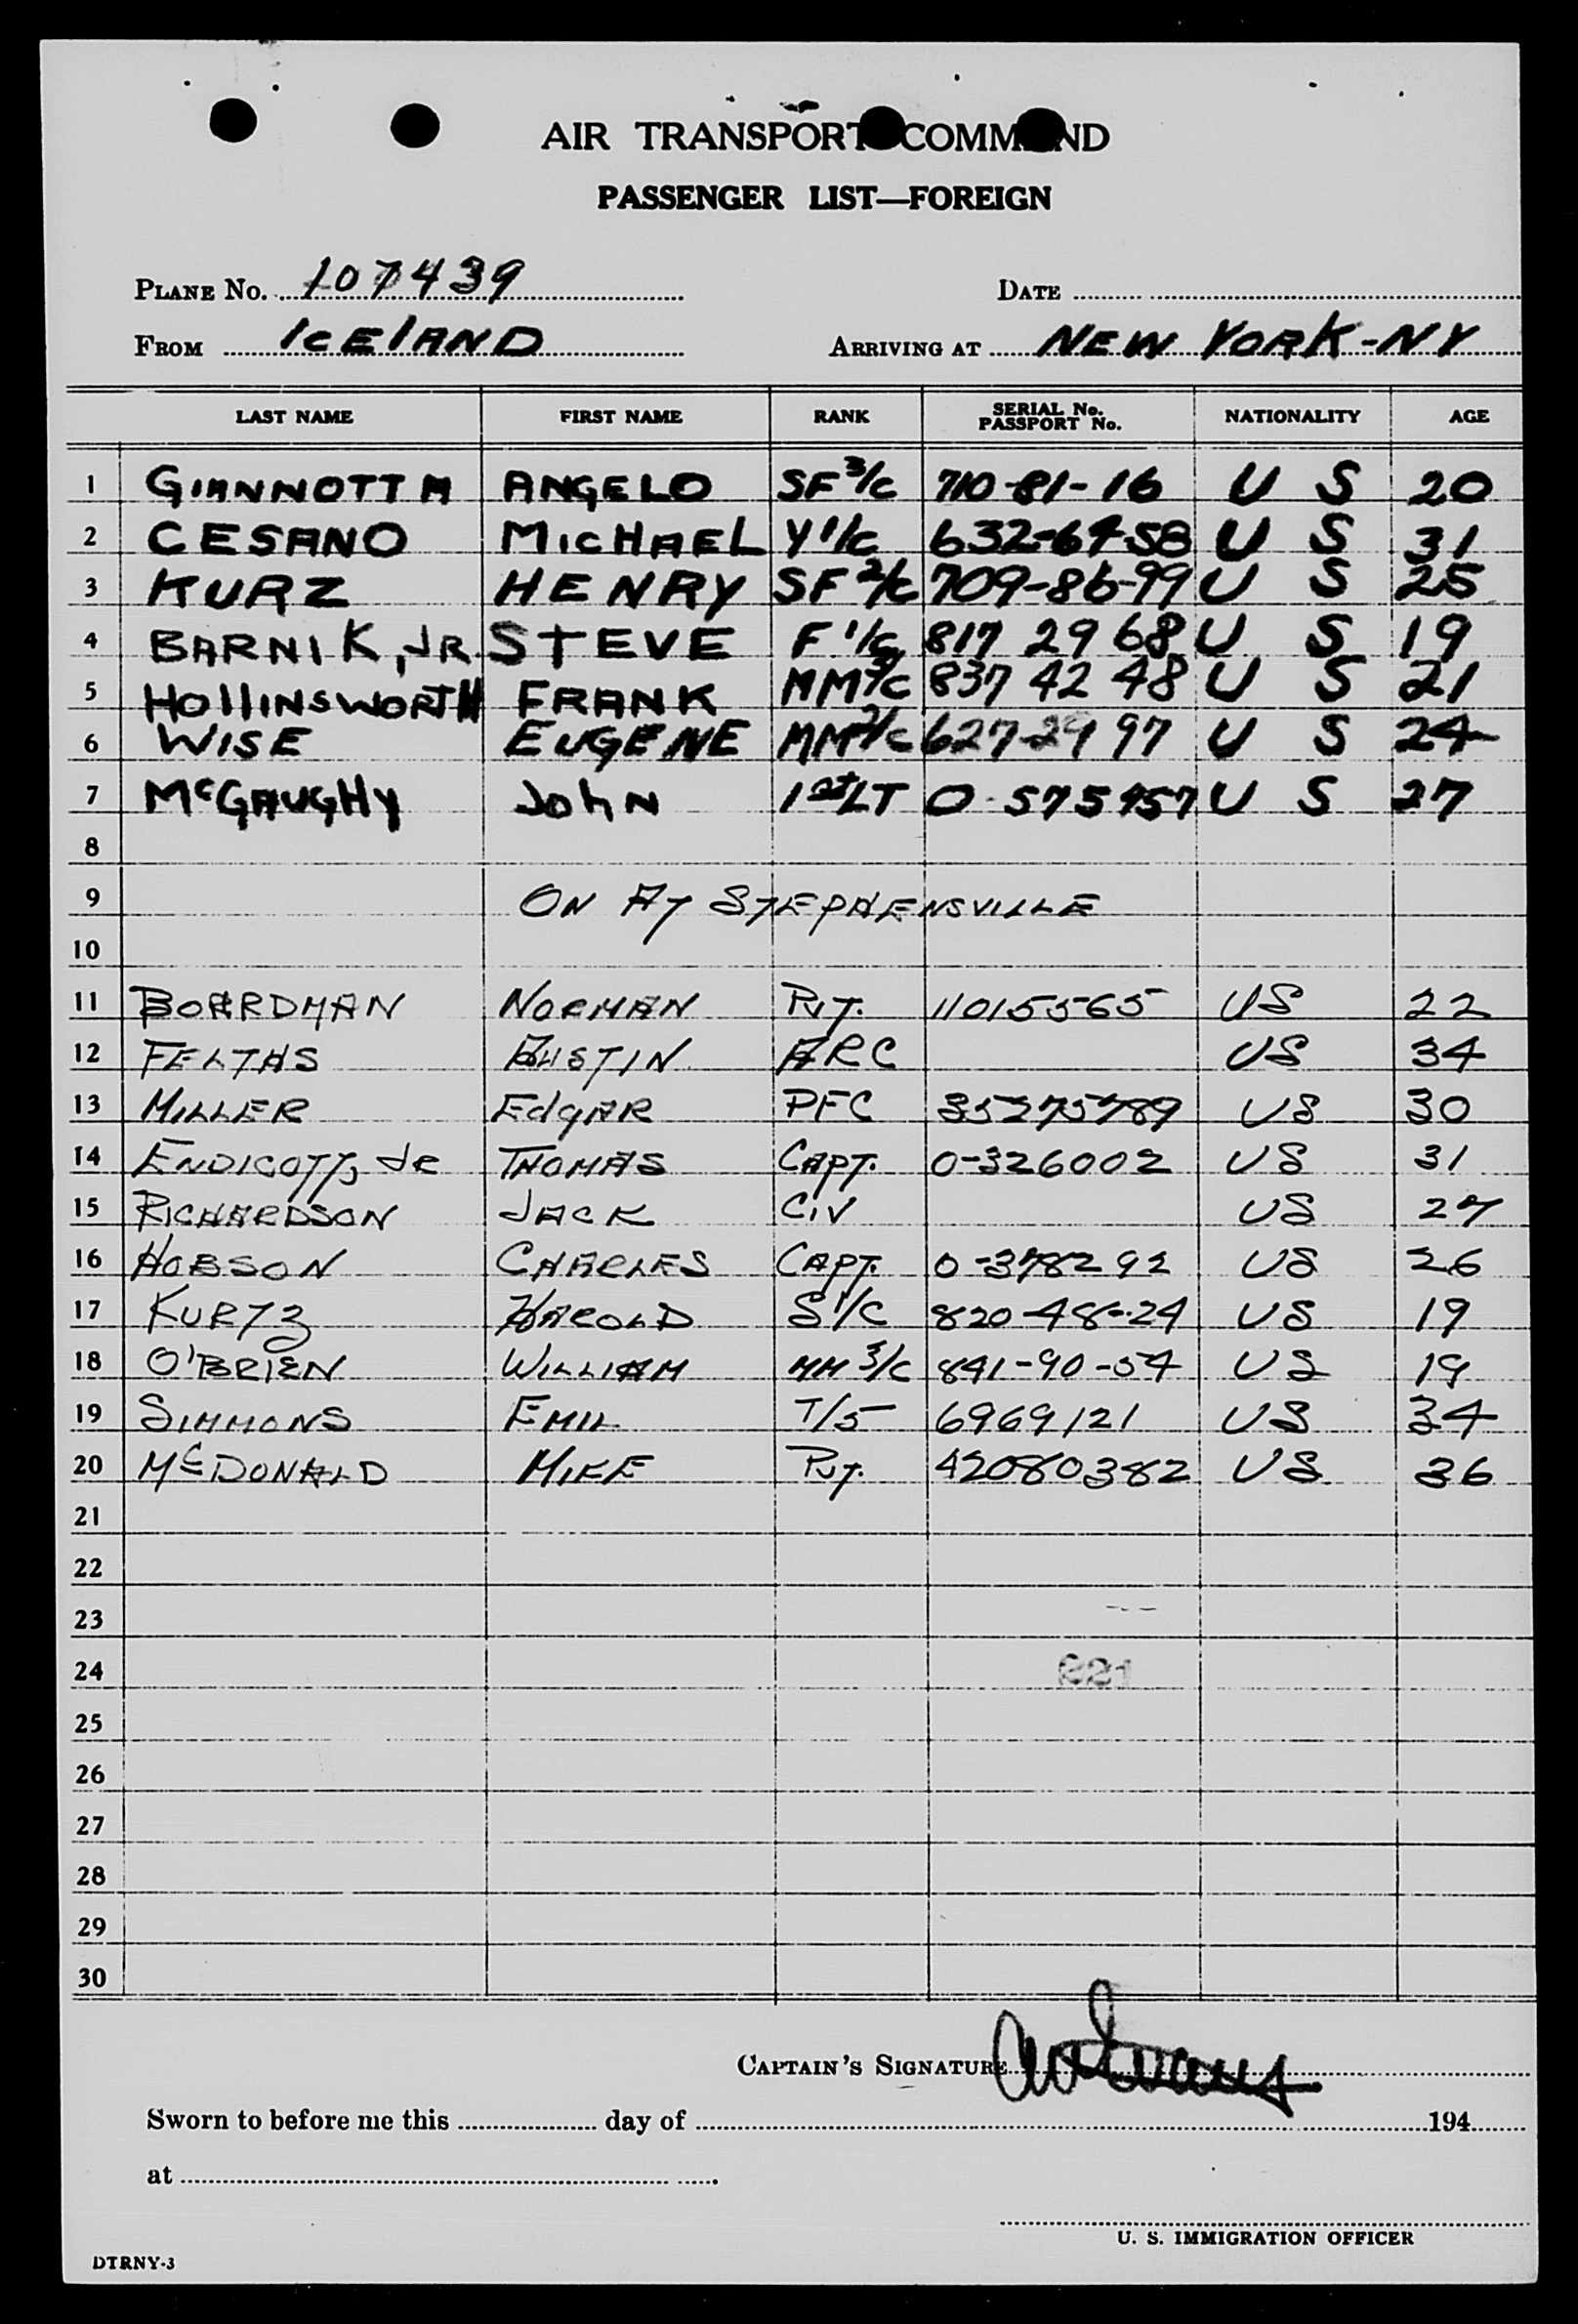 AIR TRANSPORT COMMAND
PASSENGER LIST—FOREIGN
PLANE No. 107439 DATE
FROM ICELAND ARRIVING AT NEW YORK-NY
LAST NAME FIRST NAME RANK SERIAL No. PASSPORT No. NATIONALITY AGE
1 GIANNOTTA ANGELO SF 3/C 710-81-16 U S 20
2 CESANO MICHAEL Y 1/C 632-64-58 U S 31
3 KURZ HENRY SF 2/C 709-86-99 U S 25
4 BARNIK, JR. STEVE F 1/C 817 29 68 U S 19
5 HOLLINSWORTH FRANK MM 3/C 837 42 48 U S 21
6 WISE EUGENE MM 2/C 627-29 97 U S 24
7 McGAUGHY JOHN 1st LT O-575457 U S 27
8
9 ON AT STEPHENSVILLE
10
11 BOARDMAN NORMAN Pvt. 11015565 US 22
12 FELTHS AUSTIN ARC US 34
13 MILLER EdgAR PFC 35275789 US 30
14 ENDICOTT, JR THOMAS CAPT. O-326002 US 31
15 RICHARDSON JACK CIV US 27
16 HOBSON CHARLES CAPT. O-378292 US 26
17 KURTZ HAROLD S 1/C 820-48-24 US 19
18 O'BRIEN WILLIAM MM 3/C 841-90-54 US 19
19 SIMMONS EMIL T/5 6969121 US 34
20 McDONALD MIKE Pvt. 42080382 US 36
21
22
23
24
25
26
27
28
29
30
CAPTAIN'S SIGNATURE
Sworn to before me this day of 194
at
U. S. IMMIGRATION OFFICER
DTRNY-3